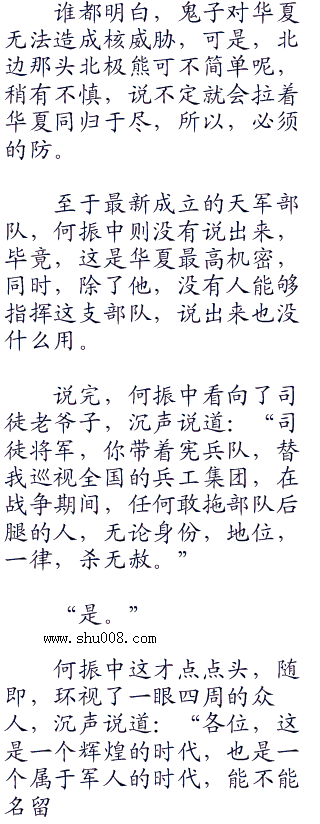 谁都明白，鬼子对华夏
无法造成核威胁，可是，北
边那头北极熊可不简单呢，
稍有不慎，说不定就会拉着
华夏同归于尽，所以，必须
的防。
至于最新成立的天军部
队，何振中则没有说出来，
毕竟，这是华夏最高机密，
同时，除了他，没有人能够
指挥这支部队，说出来也没
什么用。
说完，何振中看向了司
徒老爷子，沉声说道：“司
徒将军，你带着宪兵队，替
我巡视全国的兵工集团，在
战争期间，任何敢拖部队后
腿的人，无论身份，地位，
一律，杀无赦。”
“是。”
www.shu008.com
何振中这才点点头，随
即，环视了一眼四周的众
人，沉声说道：“各位，这
是一个辉煌的时代，也是一
个属于军人的时代，能不能
名留